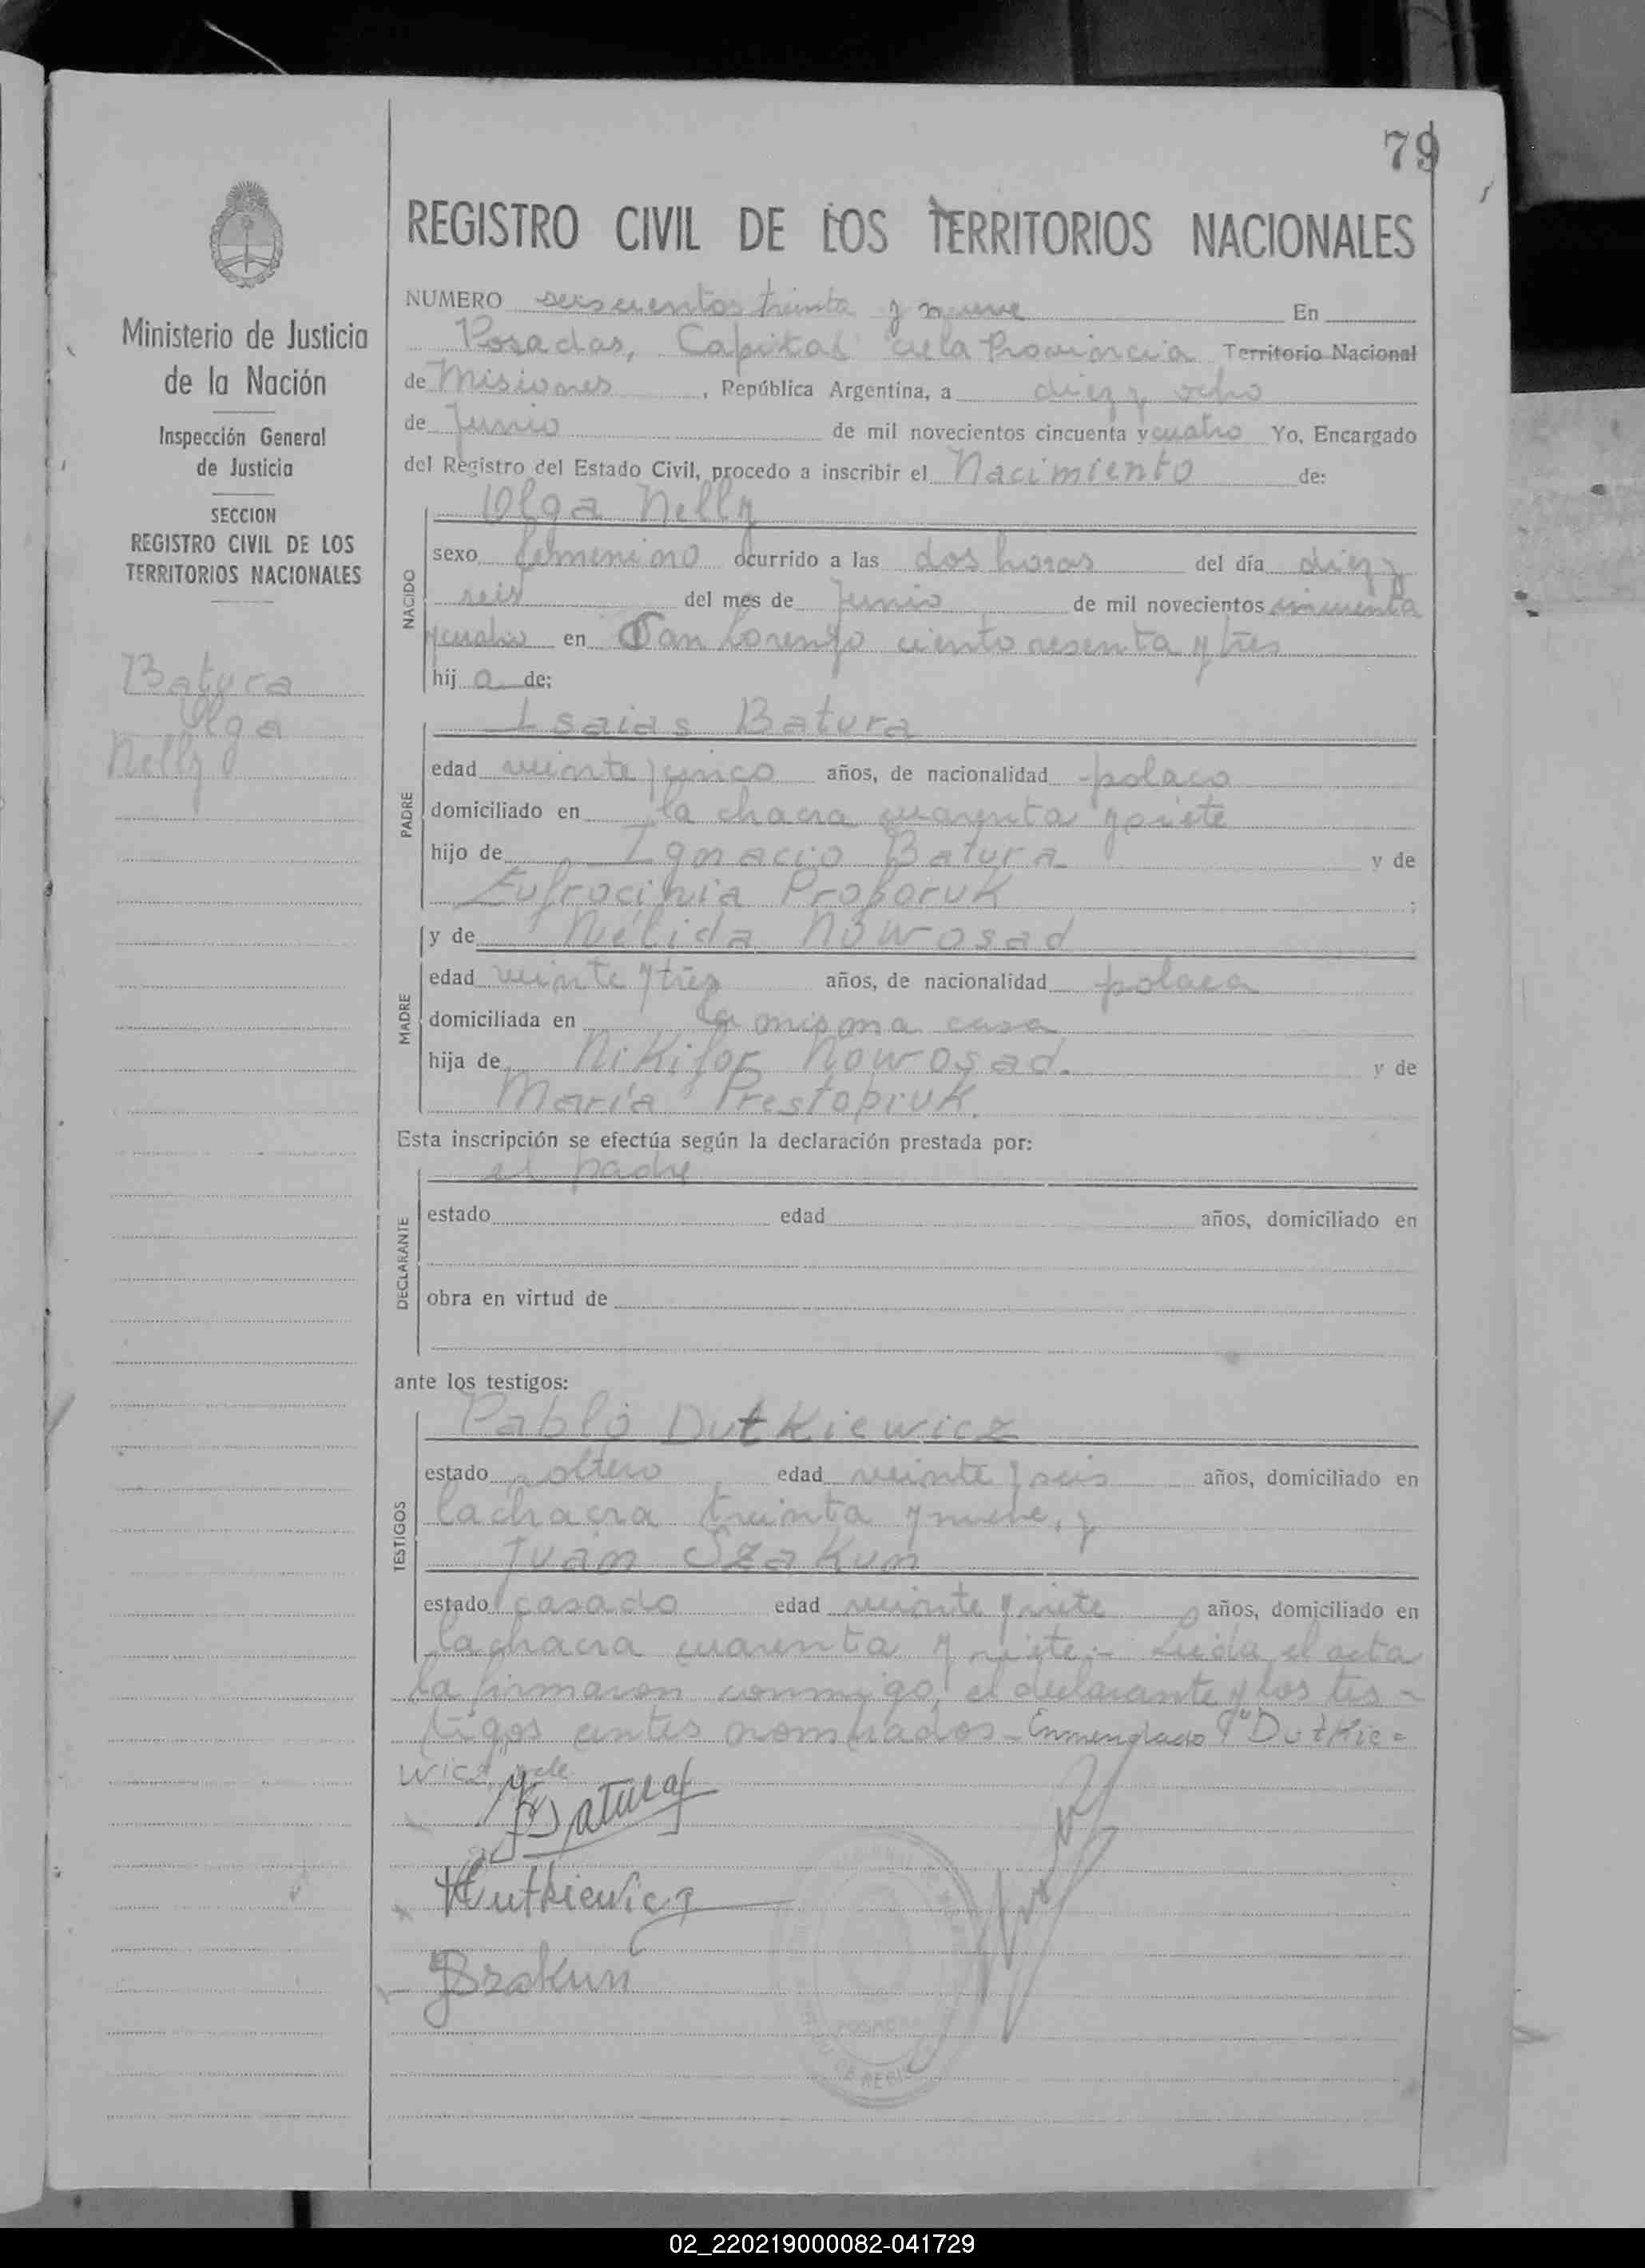 79
REGISTRO CIVIL DE LOS TERRITORIOS NACIONALES
Ministerio de Justicia
de la Nación
Inspección General
de Justicia
SECCION
REGISTRO CIVIL DE LOS
TERRITORIOS NACIONALES
Batura
Olga
Nelly
NUMERO seiscientos treinta y nueve En
Posadas, Capital de la Provincia Territorio Nacional
de Misiones, República Argentina, a diez y ocho
de Junio de mil novecientos cincuenta y cuatro Yo, Encargado
del Registro del Estado Civil, procedo a inscribir el Nacimiento de:
Olga Nelly
NACIDO
sexo femenino ocurrido a las dos horas del día diez y
seis del mes de Junio de mil novecientos cincuenta
y cuatro en San Lorenzo ciento sesenta y tres
hij a de:
Isaias Batura
PADRE
edad veinte y cinco años, de nacionalidad polaco
domiciliado en la chacra cuarenta y siete
hijo de Ignacio Batura y de
Eufrocinia Proforuk ;
y de Nélida Nowosad
MADRE
edad veinte y tres años, de nacionalidad polaca
domiciliada en la misma casa
hija de Nikifor Nowosad. y de
María Prestopiuk.
Esta inscripción se efectúa según la declaración prestada por:
el padre
DECLARANTE
estado edad años, domiciliado en
obra en virtud de
ante los testigos:
Pablo Dutkiewicz
TESTIGOS
estado soltero edad veinte y seis años, domiciliado en
la chacra treinta y nueve, y
Juan Szakun
estado casado edad veinte y siete años, domiciliado en
la chacra cuarenta y siete.- Leida el acta
la firmaron conmigo, el declarante y los tes-
tigos antes nombrados - Enmendado "Dutkie-
wicz" vale
Batura
Dutkiewicz
JSzakun
POSADAS
02_220219000082-041729